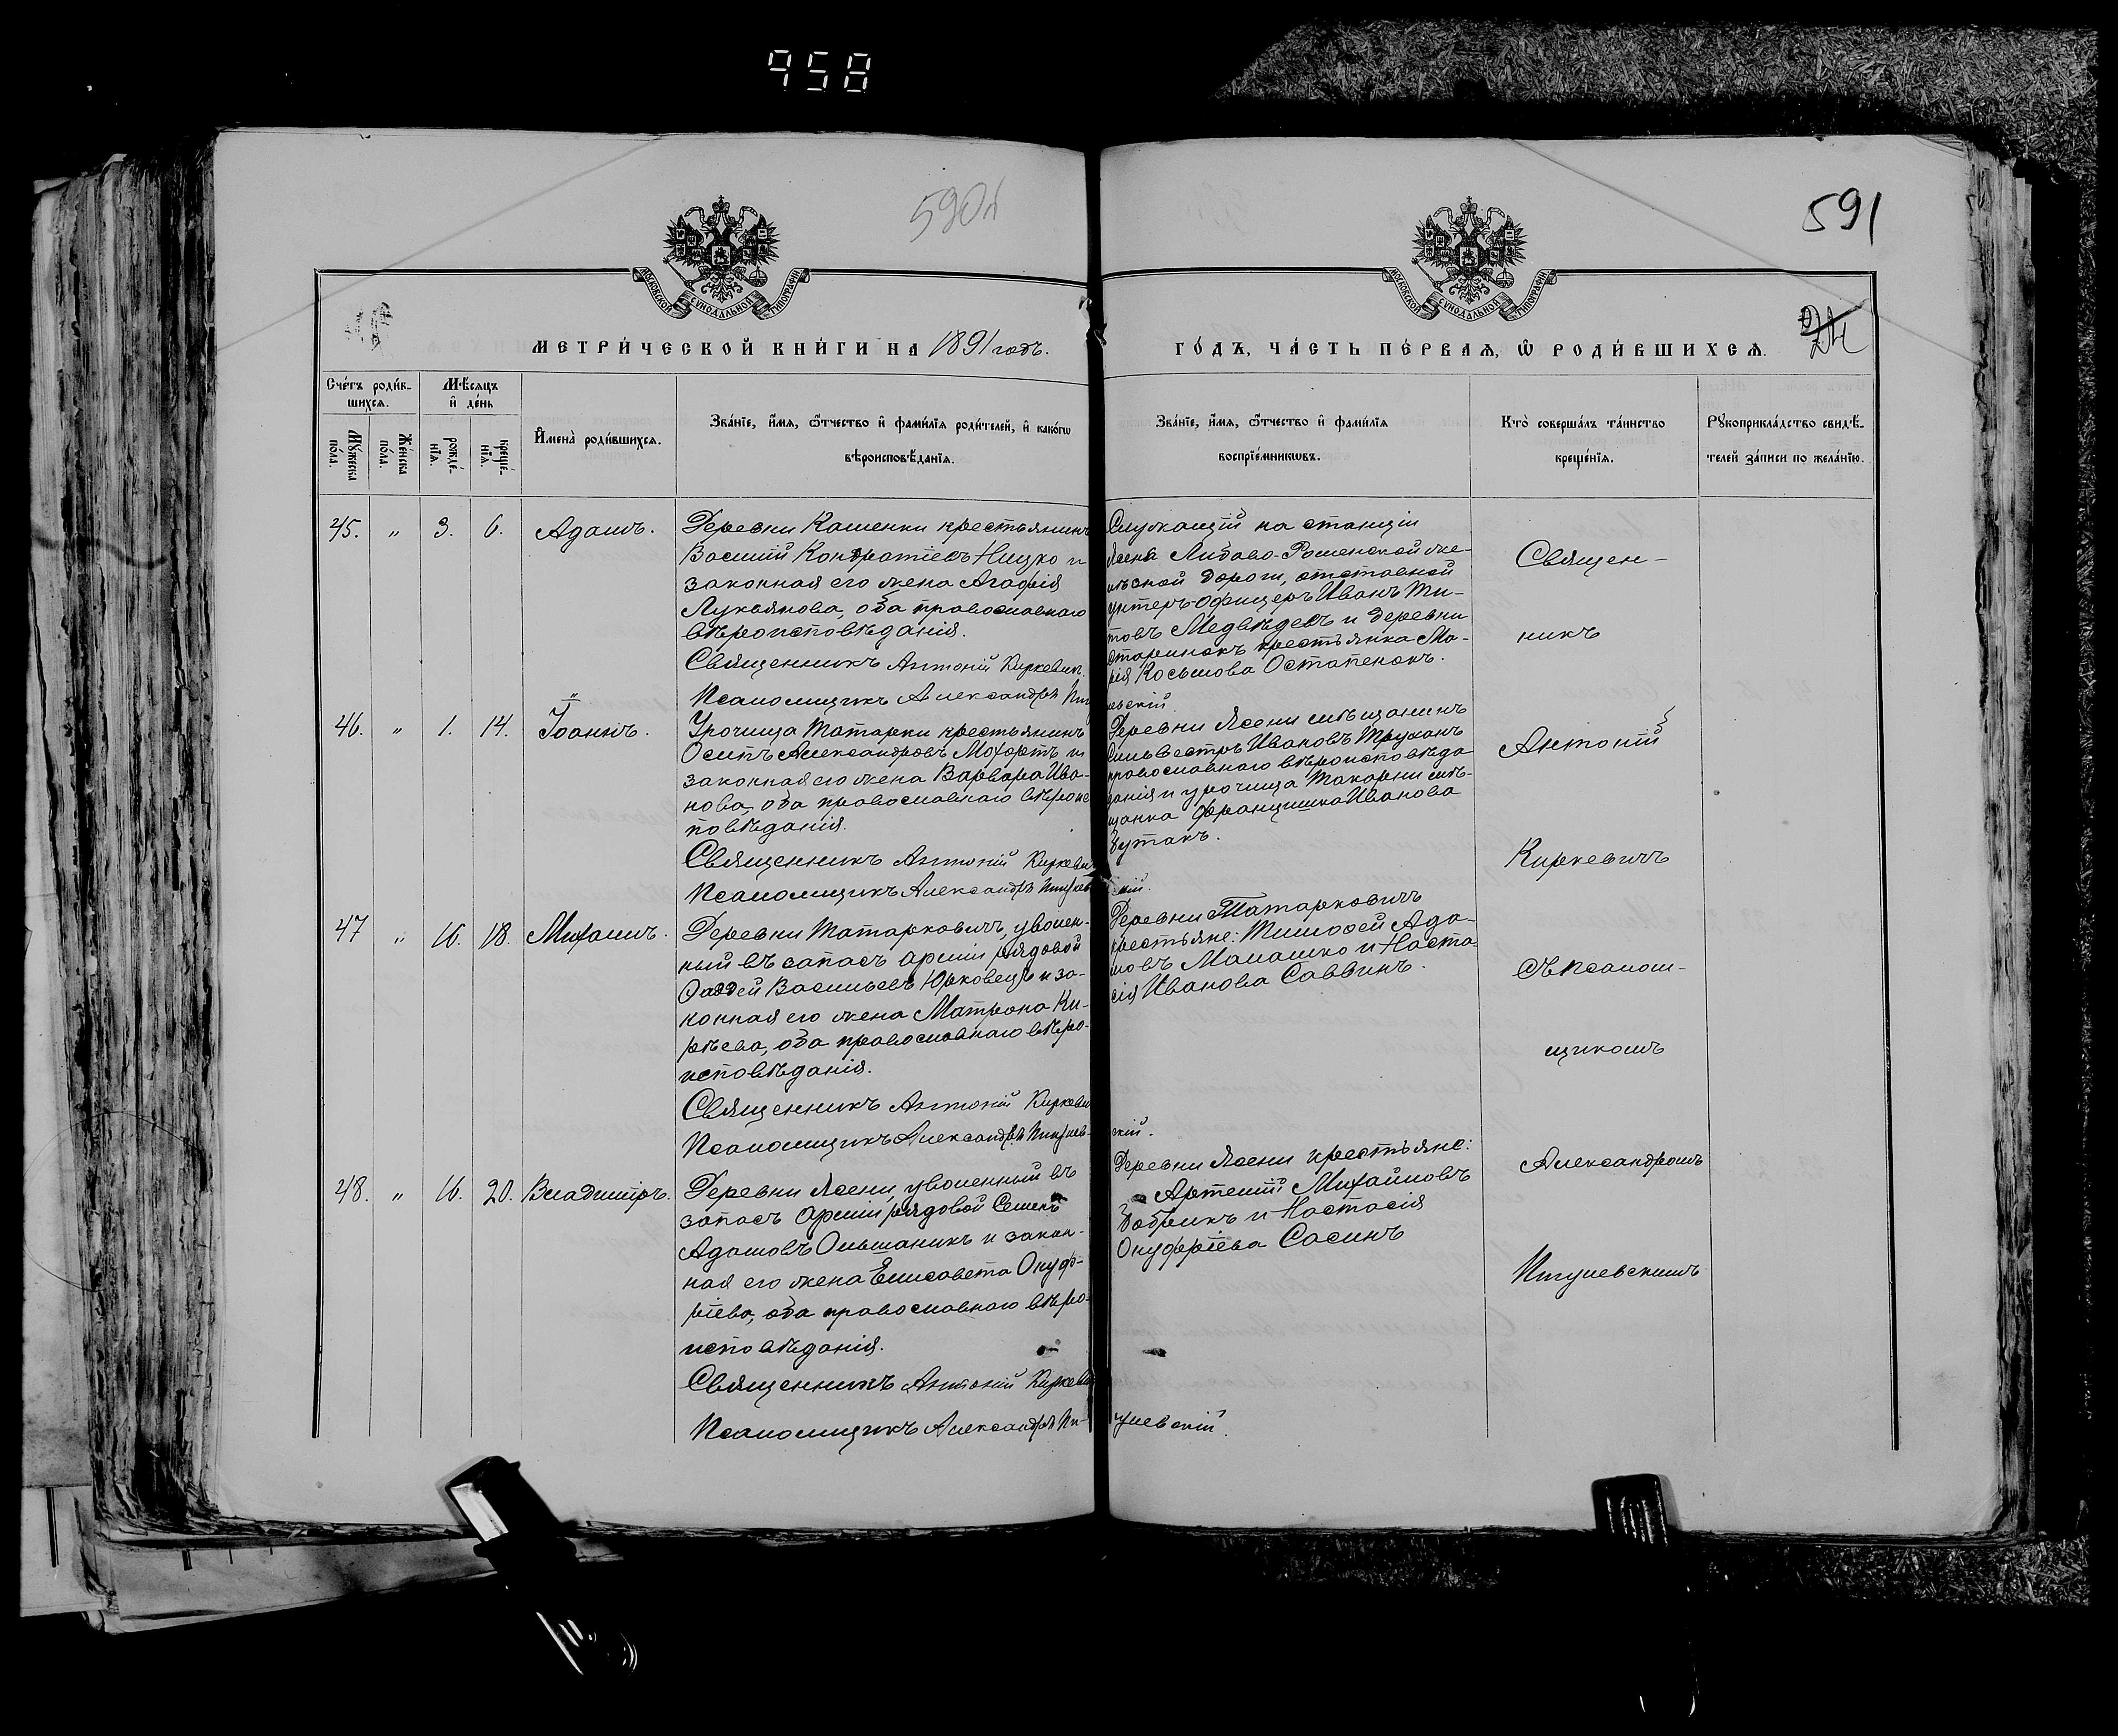 958
590
591
МОСКОВСКОЙ СѴНОДАЛЬНОЙ ТИПОГРАФІИ
МОСКОВСКОЙ СѴНОДАЛЬНОЙ ТИПОГРАФІИ
МЕТРИ́ЧЕСКОЙ КНИ́ГИ НА 1891 годъ.
ГО́ДЪ, ЧА́СТЬ ПЕ́РВАѦ, Ѡ҆ РОДИ́ВШИХСѦ.
24
Сче́тъ роди́в-
шихсѧ.
Мѣ́сѧцъ
и҆ де́нь
Мꙋ́жеска
по́ла.
Же́нска
по́ла.
рожде́-
нїѧ.
креще́-
нїѧ.
И҆мена̀ роди́вшихсѧ.
Зва́нїе, и҆́мѧ, ѻ҆́тчество и҆ фамилїѧ роди́телей, и҆ како́гѡ
вѣроисповѣ́данїѧ.
Зва́нїе, и҆́мѧ, ѻ҆́тчество и҆ фами́лїѧ
воспрїе́мникѡвъ.
Кто̀ соверша́лъ та́инство
креще́нїѧ.
Рꙋкоприкла́дство свидѣ́-
телей за́писи по жела́нїю.
45. „ 3. 6. Адамъ.
Деревни Каменки крестьянинъ
Василій Кондратіевъ Ницко и
законная его жена Агафія
Лукьянова, оба православнаго
вѣроисповѣданія.
Священникъ Антоній Киркевичъ.
Псаломщикъ Александръ
Служащій на станціи
Ясень Либаво-Роменской же-
лѣзной дороги, отставной
унтеръ-офицеръ Иванъ Ти-
товъ Медвѣдевъ и деревни
Старинокъ крестьянка Ма-
рія Косьмова Остапенокъ.
евскій.
46. „ 1. 14. Іоаннъ.
Урочища Татарки крестьянинъ
Осипъ Александровъ Мохортъ и
законная его жена Варвара Ива-
нова, оба православнаго вѣроис
повѣданія.
Священникъ Антоній Киркевич
Псаломщикъ Александръ Пигулев
Деревни Ясени мѣщанинъ
Сильвестръ Ивановъ Труханъ
православнаго вѣроисповѣда
данія и урочища Татарки мѣ-
щанка Францишка Иванова
Бутакъ.
скій.
47 „ 16. 18. Михаилъ.
Деревни Татарковичъ, уволен-
ный въ запасъ арміи рядовой
Фаддей Васильевъ Юрковецъ и за-
конная его жена Матрона Ки-
рѣева, оба православнаго вѣро-
исповѣданія.
Священникъ Антоній Киркеви
Псаломщикъ Александръ Пигулев-
Деревни Татарковичъ
крестьяне: Тимофей Ада-
мовъ Малашко и Наста-
сія Иванова Саввинъ.
скій.
48. „ 16. 20. Владиміръ.
Деревни Ясени, уволенный въ
запасъ арміи рядовой Семенъ
Адамовъ Ольшаникъ и закон-
ная его жена Елисавета Онуф-
ріева, оба православнаго вѣро-
исповѣданія.
Священникъ Антоній Киркеви
Псаломщикъ Александръ Пи-
Деревни Ясени крестьяне:
Артемій Михайловъ
Бобрикъ и Настасія
Онуфріева Сасинъ
гулевскій.
Священ-
никъ
Антоній
Киркевичъ
съ псалом-
щикомъ
Александромъ
Пигулевскимъ